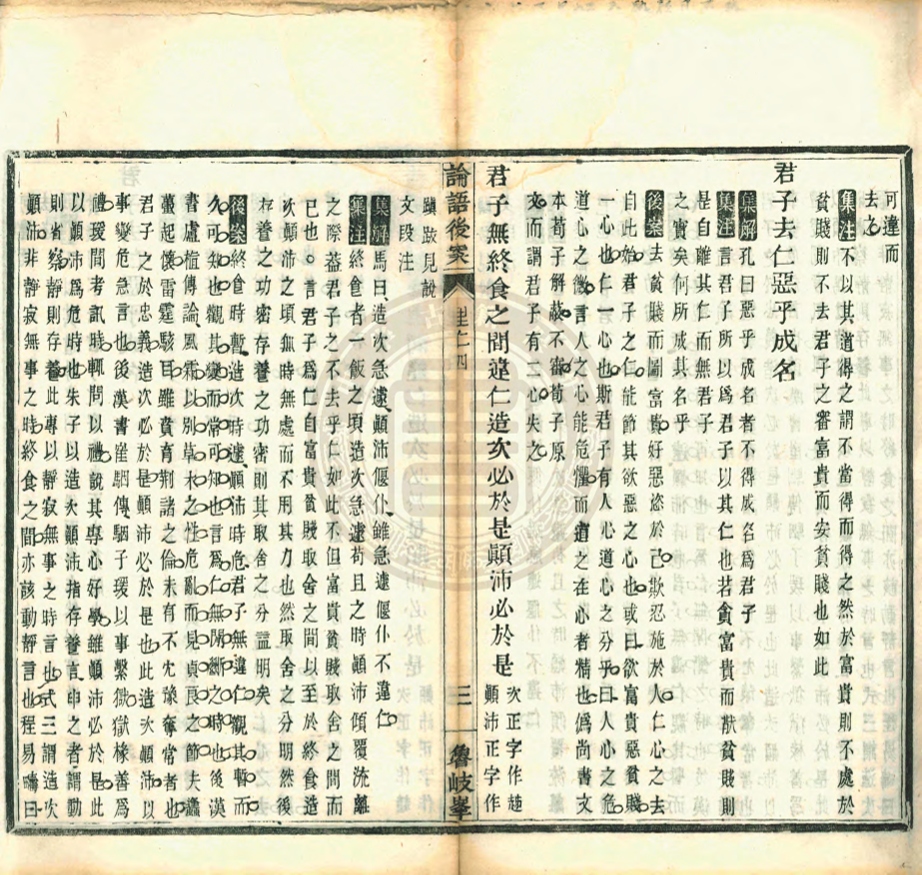 可違而
去之
君子去仁惡乎成名
集注不以其道得之謂不當得而得之然於富貴則不處於
貧賤則不去君子之審富貴而安貧賤也如此
集解孔曰惡乎成名者不得成名爲君子
集注言君子所以爲君子以其仁也若貪富貴而猒貧賤則
是自離其仁而無君子
之實矣何所成其名乎
後案去貧賤而圖富貴好惡恣於己欺忍施於人仁心之去
自此始君子之仁能節其欲惡之心也或曰欲富貴惡貧賤
一心也仁一心也斯君子有人心道心之分乎曰人心之危
道心之微言人之心能危懼而道之在心者精也僞尚書文
本荀子解蔽不審荀子原
文而謂君子有二心失之
君子無終食之間違仁造次必於是顚沛必於是
次正字作趀
顚沛正字作
蹎跋見說
文段注
集解馬曰造次急遽顚沛偃仆雖急遽偃仆不違仁
集注終食者一飯之頃造次急遽苟且之時顚沛傾覆流離
之際蓋君子之不去乎仁如此不但富貴貧賤取舍之間而
已也言君子爲仁自富貴貧賤取舍之間以至於終食造
次顚沛之頃無時無處而不用其力也然取舍之分明然後
存養之功密存養之功密則其取舍之分益明矣
後案終食時暫造次時遽顚沛時危君子無違仁觀其暫而
久可知也觀其變而常可知也言爲仁無間斷之時也後漢
書盧植傳論風霜以別草木之性危亂而見貞良之節夫蠭
蠆起懷雷霆駭耳雖賁育荆諸之倫未有不宂豫奪常者也
君子之於忠義造次必於是顚沛必於是也此造次顚沛以
事變危急言也後漢書崔駰傳駰子瑗以事繫獄獄掾善爲
禮瑗間考訊時輒問以禮說其專心好學雖顚沛必於是此
以顚沛爲危時也朱子以造次顚沛指存養言申之者謂動
則省察靜則存養此時專以靜寂無事之時言也式三謂造次
顚沛非靜寂無事之時終食之間亦該動靜言也程易疇曰
論語後案 里仁四 三 魯岐峯